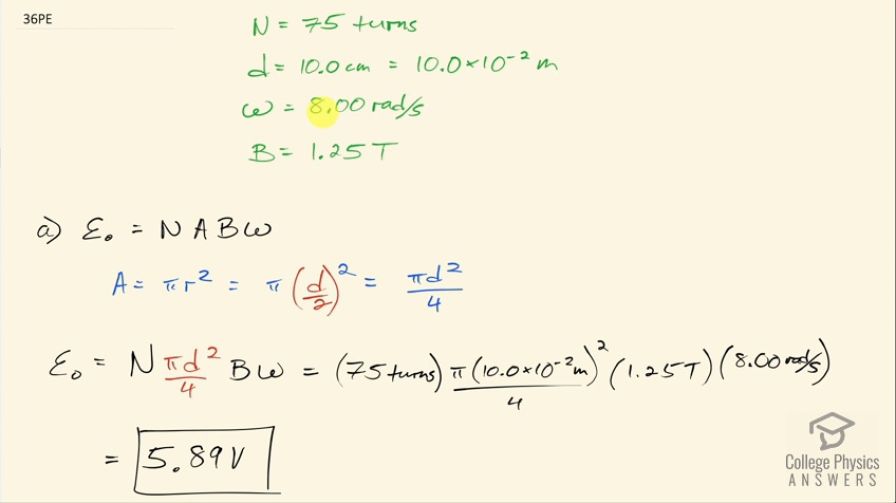 36PE
N = 75 turns
d = 10.0 cm = 10.0×10⁻² m
ω = 8.00 rad/s
B = 1.25 T
a) ε₀ = N A B ω
A = πr² = π (d/2)² = πd²/4
ε₀ = N πd²/4 B ω = (75 turns) π (10.0×10⁻² m)²/4 (1.25 T) (8.00 rad/s)
= 5.89 V
College Physics
ANSWERS